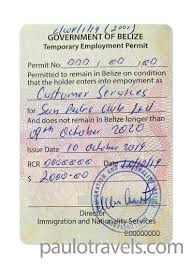 GOVERNMENT OF BELIZE
Temporary Employment Permit
Permit No: 000 / 00 / 00
Permitted to remain in Belize on condition that
the holder enters into employment as
Customer Services
for San Pedro Club Ltd
And does not remain in Belize longer than
09th October 2020
Issue Date 10 October 2019
RCR 0000000
$ 2000.00
Director
Immigration and Nationality Services
E00000000
paulotravels.com